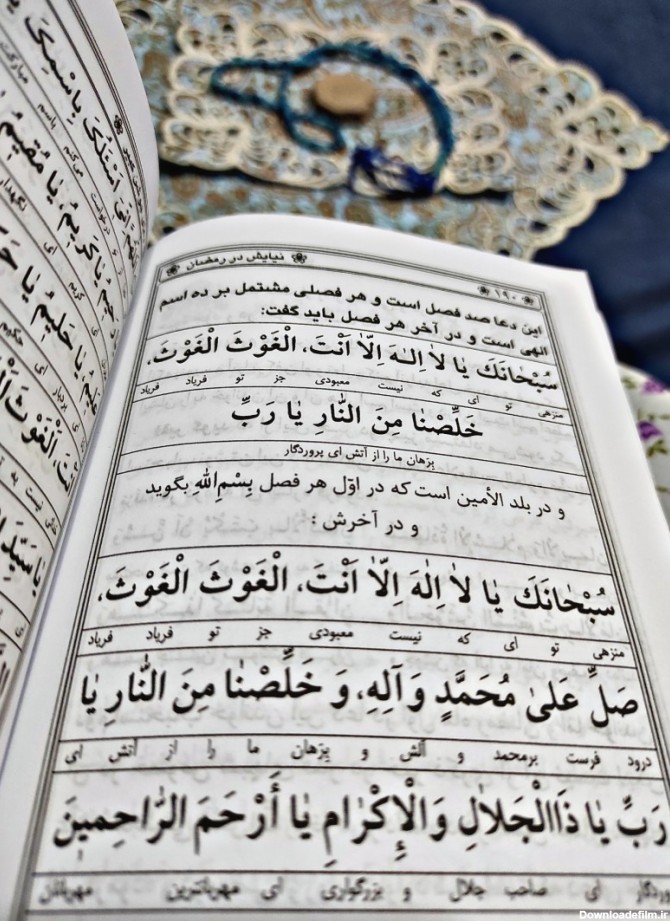 ۱۹۰ نیایش در رمضان
این دعا صد فصل است و هر فصلی مشتمل بر ده اسم
الهی است و در آخر هر فصل باید گفت:
سُبْحٰانَكَ يٰا لاٰ اِلـٰهَ اِلاّٰ اَنْتَ، الْغَوْثَ الْغَوْثَ،
منزهی تو ای که نیست معبودی جز تو فریاد فریاد
خَلِّصْنٰا مِنَ النّٰارِ يٰا رَبِّ
بِرَهان ما را از آتش ای پروردگار
و در بلد الأمین است که در اوّل هر فصل بِسْمِ اللّٰهِ بگوید
و در آخرش :
سُبْحٰانَكَ يٰا لاٰ اِلٰهَ اِلاّٰ اَنْتَ، الْغَوْثَ الْغَوْثَ،
منزهی تو ای که نیست معبودی جز تو فریاد فریاد
صَلِّ عَلىٰ مُحَمَّدٍ وَ آلِهِ، وَ خَلِّصْنٰا مِنَ النّٰارِ يٰا
درود فرست برمحمد و آلش و بِرَهان ما را از آتش ای
رَبِّ يٰا ذَاالْجَلاٰلِ وَالْإِكْرٰامِ يٰا أَرْحَمَ الرّٰاحِمينَ
ای صاحب جلال و بزرگواری ای مهربانترین مهربانان
اَسْئَلُکَ بِاسْمِکَ یٰا
یٰا کَریمُ، یٰا مُقیمُ
یٰا حَلیمُ یٰا
Downloadefilm.ir